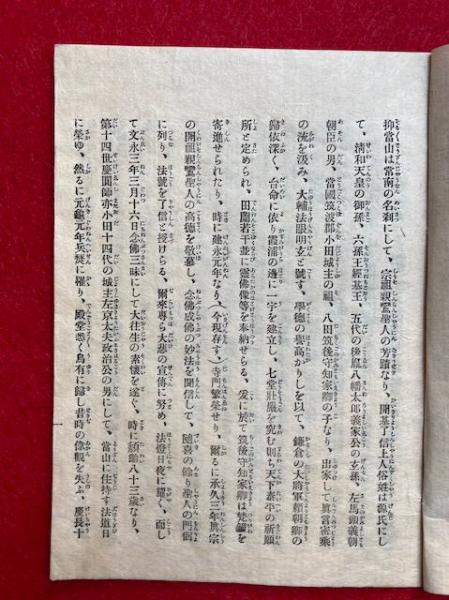 抑當山は常南の名刹にして、宗祖親鸞聖人の芳蹟なり、開基了信上人俗姓は源氏にし
て、淸和天皇の御孫、六孫王經基王、五代の後胤八幡太郞義家公の玄孫、左馬頭義朝
朝臣の男、當國筑波郡小田城主の祖、八田筑後守知家卿の子なり、出家して眞言密乘
の流を汲み、大輔法眼明玄と號す、學德の譽高かりしを以て、鎌倉の大將軍賴朝卿の
歸依深く、台命に依り霞浦の邊に一宇を建立し、七堂莊嚴を究む則ち天下泰平の祈願
所と定められ、田園若干並に靈佛像等を奉納せらる、爰に於て筑後守知家卿は梵鐘を
寄進せられたり、時に建永元年なり、(今現存す)寺門繁榮せり、爾るに承久三年眞宗
の開祖親鸞聖人の高德を敬慕し、念佛成佛の妙法を聞信して、隨喜の餘り聖人の門侶
に列り、法號を了信と授けらる、爾來專ら大悲の宣傳に努め、法燈日夜に耀く、而し
て文永三年三月十六日念佛三昧にして大往生の素懷を遂ぐ、時に頽齡八十三歲なり、
第十四世慶圓師亦小田十四代の城主左京太夫政治公の男にして、當山に住持す法道日
に榮ゆ、然るに元龜元年兵燹に罹り、殿堂悉く烏有に歸し昔時の偉觀を失ふ、慶長十